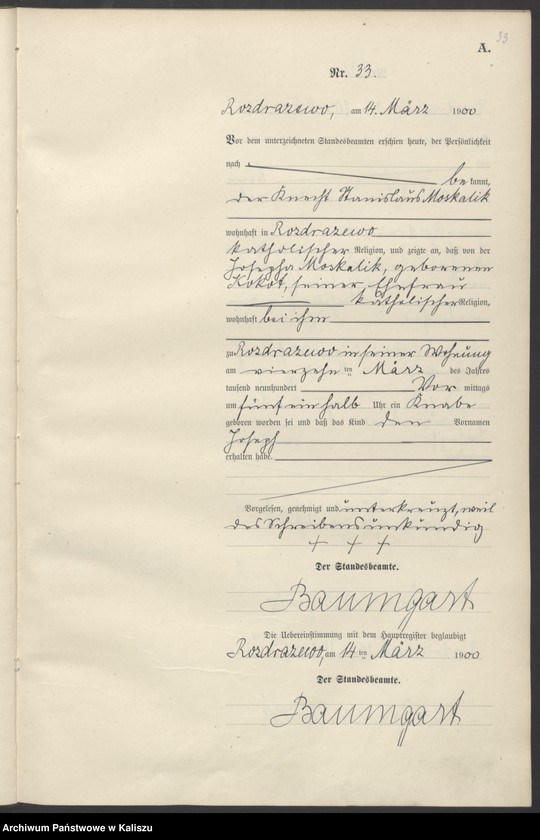 33
A.
Nr. 33.
Rozdrazewo, am 14. März 1900
Vor dem unterzeichneten Standesbeamten erschien heute, der Persönlichkeit
nach
be kannt,
der Knecht Stanislaus Moskalik
wohnhaft in Rozdrazewo
katholischer Religion, und zeigte an, daß von der
Josepha Moskalik, geborenen
Kokot, seiner Ehefrau
katholischer Religion,
wohnhaft bei ihm
zu Rozdrazewo in seiner Wohnung
am vierzehn ten März des Jahres
tausend neunhundert Vor mittags
um fünf ein halb Uhr ein Knabe
geboren worden sei und daß das Kind den Vornamen
Joseph
erhalten habe.
Vorgelesen, genehmigt und unterkreuzt, weil
des Schreibens unkundig
+ + +
Der Standesbeamte.
Baumgart
Die Uebereinstimmung mit dem Hauptregister beglaubigt
Rozdrazewo, am 14 ten März 1900
Der Standesbeamte.
Baumgart
Archiwum Państwowe w Kaliszu